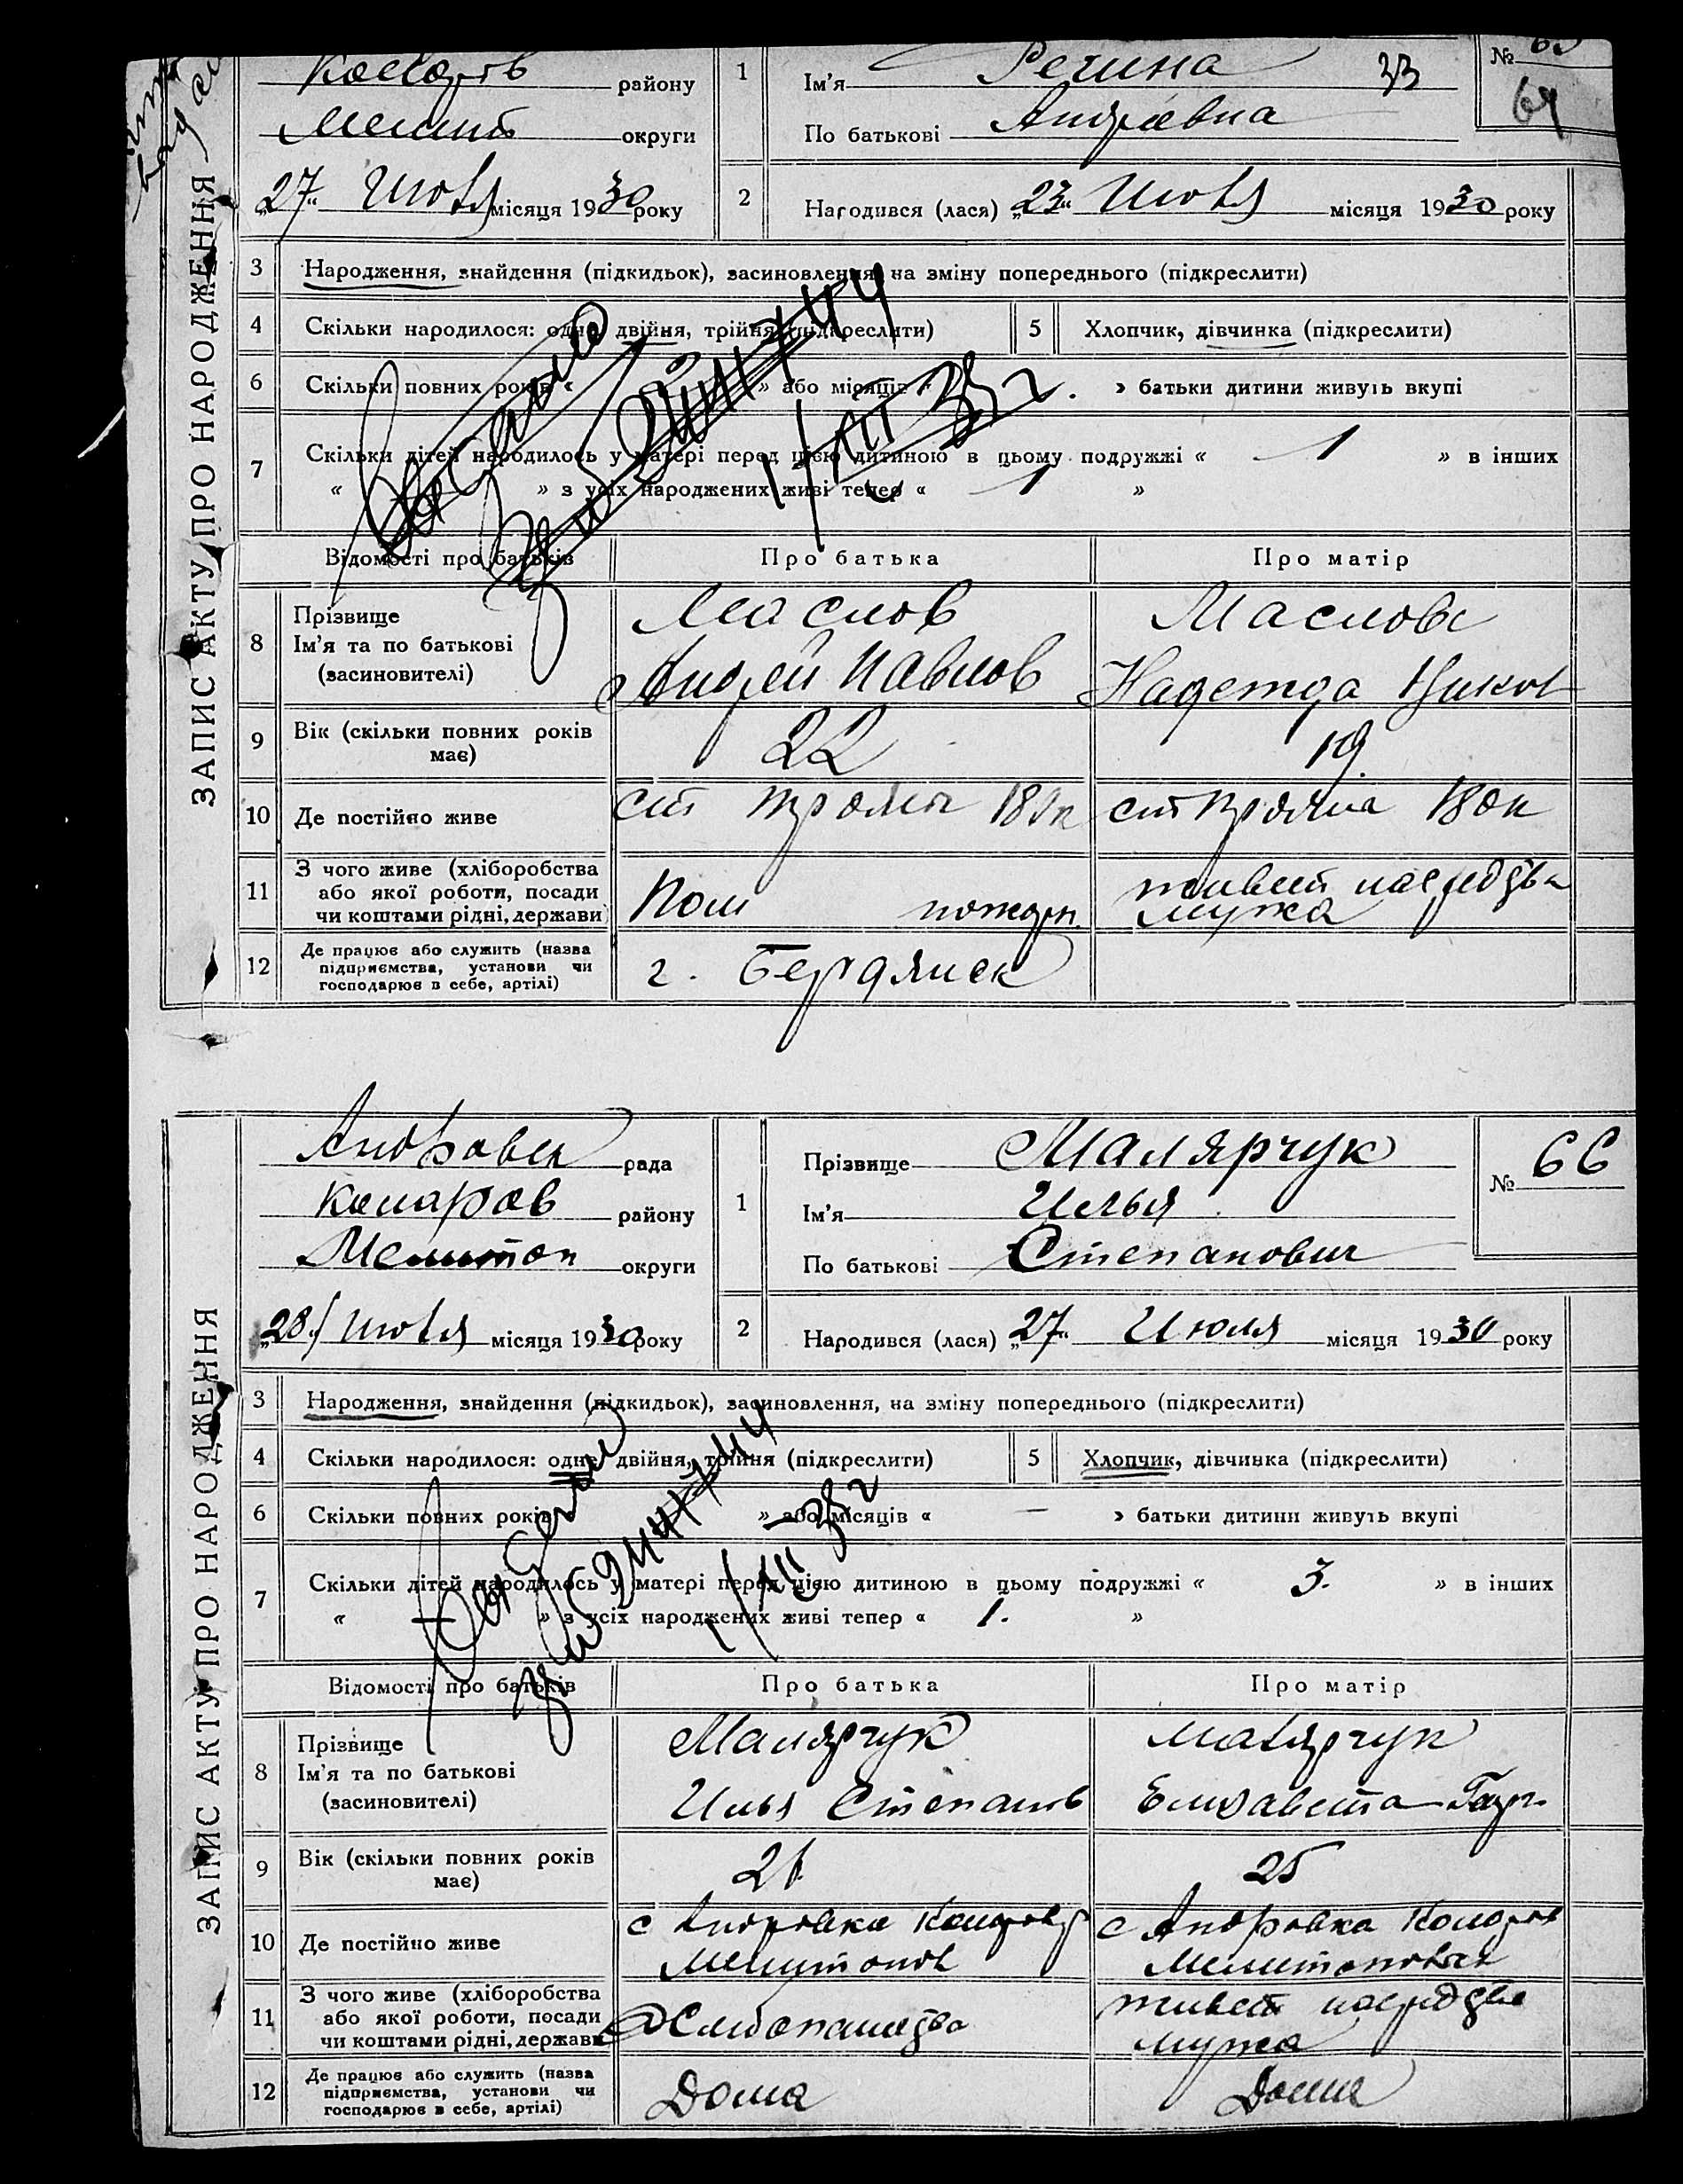 района
району
Ім’я Регина 33
№ 65
Мелит округи
По батькові Андреевна
64
„27“ Июля місяця 1930 року
2 Народився (лася) „23“ Июля місяця 1930 року
ЗАПИС АКТУ ПРО НАРОДЖЕННЯ
3 Народження, знайдення (підкидьок), засиновлення, на зміну попереднього (підкреслити)
4 Скільки народилося: одне, двійня, трійня (підкреслити) 5 Хлопчик, дівчинка (підкреслити)
6 Скільки повних років « » або місяців « » батьки дитини живуть вкупі
7 Скільки дітей народилось у матері перед цією дитиною в цьому подружжі « 1 » в інших
« » з усіх народжених живі тепер « 1 »
1/XII 35 г.
Відомості про батьків Про батька Про матір
8 Прізвище
Ім’я та по батькові
(засиновителі)
Маслов
Андрей Павлов
Маслова
Надежда Никол
9 Вік (скільки повних років має) 22 19
10 Де постійно живе
11 З чого живе (хліборобства
або якої роботи, посади
чи коштами рідні, держави)
Пом пожарн.
живет на средства
мужа
12 Де працює або служить (назва
підприємства, установи чи
господарює в себе, артілі)
г. Бердянск
Андровка рада
1 Прізвище Малярчук
№ 66
Комаров району
Ім’я Илья
Мелитоп округи
По батькові Степанович
„28“ Июля місяця 1930 року
2 Народився (лася) „27“ Июля місяця 1930 року
ЗАПИС АКТУ ПРО НАРОДЖЕННЯ
3 Народження, знайдення (підкидьок), засиновлення, на зміну попереднього (підкреслити)
4 Скільки народилося: одне, двійня, трійня (підкреслити) 5 Хлопчик, дівчинка (підкреслити)
6 Скільки повних років » або місяців « — » батьки дитини живуть вкупі
7 Скільки дітей народилось у матері перед цією дитиною в цьому подружжі « 3. » в інших
« » з усіх народжених живі тепер « 1. »
1/XII 35 г
Відомості про батьків Про батька Про матір
8 Прізвище
Ім’я та по батькові
(засиновителі)
Малярчук
Илья Степанов
Малярчук
Елизавета Гавр.
9 Вік (скільки повних років має) 25
10 Де постійно живе
с Андровка Комаров
Мелитопол
с Андровка Комаров
Мелитопольск
11 З чого живе (хліборобства
або якої роботи, посади
чи коштами рідні, держави)
Хлебопашество
живет на средства
мужа
12 Де працює або служить (назва
підприємства, установи чи
господарює в себе, артілі)
Дома
Дома